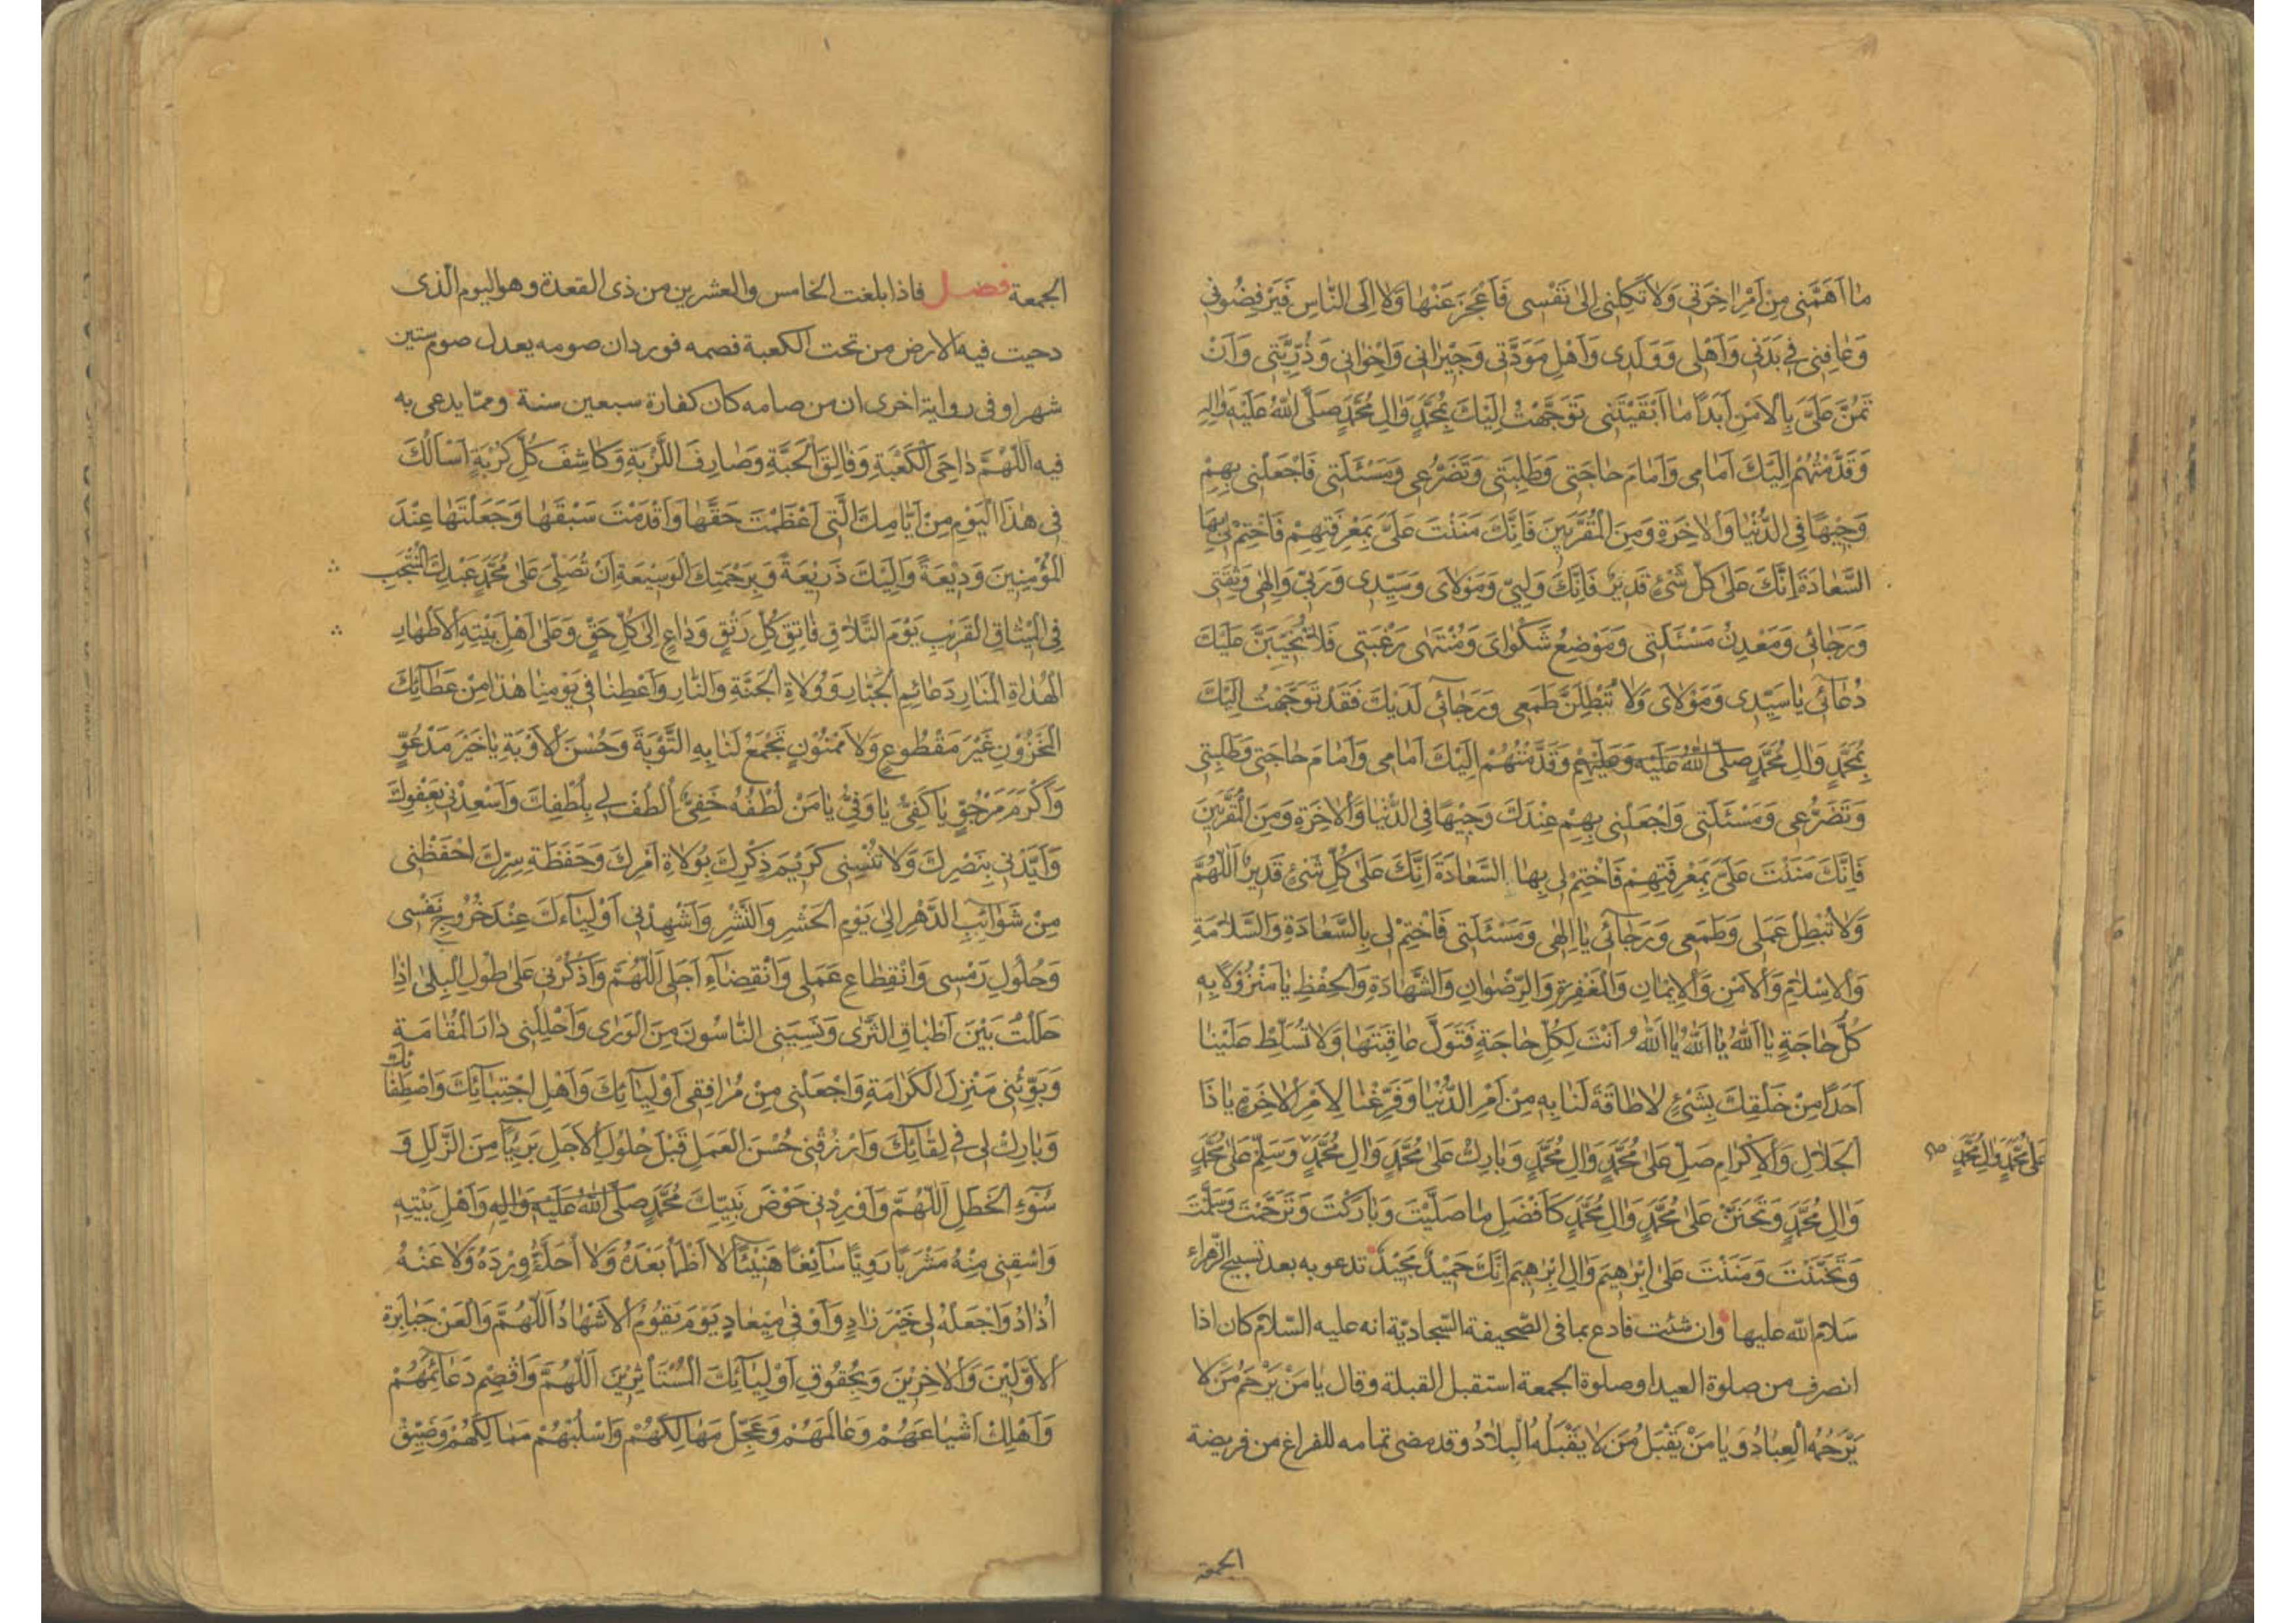 مٰا اَهَمَّنى مِنْ اَمْرِ اٰخِرَتى وَلاٰ تَكِلْنى اِلىٰ نَفْسى فَاَعْجِزَ عَنْهٰا وَلاٰ اِلَى النّٰاسِ فَيَرْفِضُونى
وَعٰافِنى فى بَدَنى وَاَهْلى وَوَلَدى وَاَهْلِ مَوَدَّتى وَجيرٰانى وَاِخْوٰانى وَذُرِّيَّتى وَاَنْ
تَمُنَّ عَلَىَّ بِالْاَمْنِ اَبَدًا مٰا اَبْقَيْتَنى تَوَجَّهْتُ اِلَيْكَ بِمُحَمَّدٍ وَاٰلِ مُحَمَّدٍ صَلَّى اللّٰهُ عَلَيْهِ وَاٰلِهِ
وَقَدَّمْتُهُمْ اِلَيْكَ اَمٰامى وَاَمٰامَ حٰاجَتى وَطَلِبَتى وَتَضَرُّعى وَمَسْئَلَتى فَاجْعَلْنى بِهِمْ
وَجيهًا فِى الدُّنْيٰا وَالْاٰخِرَةِ وَمِنَ الْمُقَرَّبينَ فَاِنَّكَ مَنَنْتَ عَلَىَّ بِمَعْرِفَتِهِمْ فَاخْتِمْ لى بِهَا
السَّعٰادَةَ اِنَّكَ عَلىٰ كُلِّ شَىْءٍ قَديرٌ فَاِنَّكَ وَلِيّى وَمَوْلاٰىَ وَسَيِّدى وَرَبّى وَاِلٰهى وَثِقَتى
وَرَجٰائى وَمَعْدِنُ مَسْئَلَتى وَمَوْضِعُ شَكْوٰاىَ وَمُنْتَهٰى رَغْبَتى فَلاٰ يَخيبَنَّ عَلَيْكَ
دُعٰائى يٰا سَيِّدى وَمَوْلاٰىَ وَلاٰ تُبْطِلَنَّ طَمَعى وَرَجٰائى لَدَيْكَ فَقَدْ تَوَجَّهْتُ اِلَيْكَ
بِمُحَمَّدٍ وَاٰلِ مُحَمَّدٍ صَلَّى اللّٰهُ عَلَيْهِ وَعَلَيْهِمْ وَقَدَّمْتُهُمْ اِلَيْكَ اَمٰامى وَاَمٰامَ حٰاجَتى وَطَلِبَتى
وَتَضَرُّعى وَمَسْئَلَتى وَاجْعَلْنى بِهِمْ عِنْدَكَ وَجيهًا فِى الدُّنْيٰا وَالْاٰخِرَةِ وَمِنَ الْمُقَرَّبينَ
فَاِنَّكَ مَنَنْتَ عَلَىَّ بِمَعْرِفَتِهِمْ فَاخْتِمْ لى بِهَا السَّعٰادَةَ اِنَّكَ عَلىٰ كُلِّ شَىْءٍ قَديرٌ اَللّٰهُمَّ
وَلاٰ تُبْطِلْ عَمَلى وَطَمَعى وَرَجٰائى يٰا اِلٰهى وَمَسْئَلَتى فَاخْتِمْ لى بِالسَّعٰادَةِ وَالسَّلاٰمَةِ
وَالْاِسْلاٰمِ وَالْاَمْنِ وَالْايمٰانِ وَالْمَغْفِرَةِ وَالرِّضْوٰانِ وَالشَّهٰادَةِ وَالْحِفْظِ يٰا مَنْزُولًا بِهِ
كُلُّ حٰاجَةٍ يٰا اَللّٰهُ يٰا اَللّٰهُ يٰا اَللّٰهُ اَنْتَ لِكُلِّ حٰاجَةٍ فَتَوَلَّ عٰاقِبَتَهٰا وَلاٰ تُسَلِّطْ عَلَيْنٰا
اَحَدًا مِنْ خَلْقِكَ بِشَىْءٍ لاٰ طٰاقَةَ لَنٰا بِهِ مِنْ اَمْرِ الدُّنْيٰا وَفَرِّغْنٰا لِاَمْرِ الْاٰخِرَةِ يٰا ذَا
الْجَلاٰلِ وَالْاِكْرٰامِ صَلِّ عَلىٰ مُحَمَّدٍ وَاٰلِ مُحَمَّدٍ وَبٰارِكْ عَلىٰ مُحَمَّدٍ وَاٰلِ مُحَمَّدٍ وَسَلِّمْ عَلىٰ مُحَمَّدٍ
عَلىٰ مُحَمَّدٍ وَاٰلِ مُحَمَّدٍ صح
وَاٰلِ مُحَمَّدٍ وَتَحَنَّنْ عَلىٰ مُحَمَّدٍ وَاٰلِ مُحَمَّدٍ كَاَفْضَلِ مٰا صَلَّيْتَ وَبٰارَكْتَ وَتَرَحَّمْتَ وَسَلَّمْتَ
وَتَحَنَّنْتَ وَمَنَنْتَ عَلىٰ اِبْرٰهيمَ وَاٰلِ اِبْرٰهيمَ اِنَّكَ حَميدٌ مَجيدٌ تدعو به بعد تسبيح الزّهراء
سلام اللّه عليها وان شئت فادع بما فى الصّحيفة السّجاديّة انه عليه السّلام كان اذا
انصرف من صلوة العيد او صلوة الجمعة استقبل القبلة وقال يٰا مَنْ يَرْحَمُ مَنْ لاٰ
يَرْحَمُهُ الْعِبٰادُ وَيٰا مَنْ يَقْبَلُ مَنْ لاٰ يَقْبَلُهُ الْبِلاٰدُ وقد مضى تمامه للفراغ من فريضة
الجمعة
الجمعة فصل فاذا بلغت الخامس والعشرين من ذى القعدة وهو اليوم الّذى
دحيت فيه الارض من تحت الكعبة فصمه فورد ان صومه يعدل صوم ستين
شهرا وفى رواية اخرى ان من صامه كان كفارة سبعين سنة وممّا يدعى به
فيه اَللّٰهُمَّ دٰاحِىَ الْكَعْبَةِ وَفٰالِقَ الْحَبَّةِ وَصٰارِفَ اللَّزْبَةِ وَكٰاشِفَ كُلِّ كُرْبَةٍ اَسْاَلُكَ
فى هٰذَا الْيَوْمِ مِنْ اَيّٰامِكَ الَّتى اَعْظَمْتَ حَقَّهٰا وَاَقْدَمْتَ سَبْقَهٰا وَجَعَلْتَهٰا عِنْدَ
الْمُؤْمِنينَ وَديعَةً وَاِلَيْكَ ذَريعَةً وَبِرَحْمَتِكَ الْوَسيعَةِ اَنْ تُصَلِّىَ عَلىٰ مُحَمَّدٍ عَبْدِكَ الْمُنْتَجَبِ
فِى الْميثٰاقِ الْقَريبِ يَوْمَ التَّلاٰقِ فٰاتِقِ كُلِّ رَتْقٍ وَدٰاعٍ اِلىٰ كُلِّ حَقٍّ وَعَلىٰ اَهْلِ بَيْتِهِ الْاَطْهٰارِ
الْهُدٰاةِ الْمَنٰارِ دَعٰائِمِ الْجَبّٰارِ وَوُلاٰةِ الْجَنَّةِ وَالنّٰارِ وَاَعْطِنٰا فى يَوْمِنٰا هٰذٰا مِنْ عَطٰائِكَ
الْمَخْزُونِ غَيْرَ مَقْطُوعٍ وَلاٰ مَمْنُونٍ تَجْمَعْ لَنٰا بِهِ التَّوْبَةَ وَحُسْنَ الْاَوْبَةِ يٰا خَيْرَ مَدْعُوٍّ
وَاَكْرَمَ مَرْجُوٍّ يٰا كَفِىُّ يٰا وَفِىُّ يٰا مَنْ لُطْفُهُ خَفِىٌّ اُلْطُفْ لى بِلُطْفِكَ وَاَسْعِدْنى بِعَفْوِكَ
وَاَيِّدْنى بِنَصْرِكَ وَلاٰ تُنْسِنى كَريمَ ذِكْرِكَ بِوُلاٰةِ اَمْرِكَ وَحَفَظَةِ سِرِّكَ احْفَظْنى
مِنْ شَوٰائِبِ الدَّهْرِ اِلىٰ يَوْمِ الْحَشْرِ وَالنَّشْرِ وَاَشْهِدْنى اَوْلِيٰاءَكَ عِنْدَ خُرُوجِ نَفْسى
وَحُلُولِ رَمْسى وَانْقِطٰاعِ عَمَلى وَانْقِضٰاءِ اَجَلى اَللّٰهُمَّ وَاذْكُرْنى عَلىٰ طُولِ الْبِلىٰ اِذٰا
حَلَلْتُ بَيْنَ اَطْبٰاقِ الثَّرٰى وَنَسِيَنى النّٰاسُونَ مِنَ الْوَرٰى وَاَحْلِلْنى دٰارَ الْمُقٰامَةِ
وَبَوِّئْنى مَنْزِلَ الْكَرٰامَةِ وَاجْعَلْنى مِنْ مُرٰافِقى اَوْلِيٰائِكَ وَاَهْلِ اجْتِبٰائِكَ وَاصْطِفٰائِكَ
وَبٰارِكْ لى فى لِقٰائِكَ وَارْزُقْنى حُسْنَ الْعَمَلِ قَبْلَ حُلُولِ الْاَجَلِ بَريئًا مِنَ الزَّلَلِ وَ
سُوءِ الْخَطَلِ اَللّٰهُمَّ وَاَوْرِدْنى حَوْضَ نَبِيِّكَ مُحَمَّدٍ صَلَّى اللّٰهُ عَلَيْهِ وَاٰلِهِ وَاَهْلِ بَيْتِهِ
وَاسْقِنى مِنْهُ مَشْرَبًا رَوِيًّا سٰائِغًا هَنيئًا لاٰ اَظْمَأُ بَعْدَهُ وَلاٰ اُحَلَّأُ وِرْدَهُ وَلاٰ عَنْهُ
اُذٰادُ وَاجْعَلْهُ لى خَيْرَ زٰادٍ وَاَوْفىٰ ميعٰادٍ يَوْمَ يَقُومُ الْاَشْهٰادُ اَللّٰهُمَّ وَالْعَنْ جَبٰابِرَةَ
الْاَوَّلينَ وَالْاٰخِرينَ وَبِحُقُوقِ اَوْلِيٰائِكَ الْمُسْتَأْثِرينَ اَللّٰهُمَّ وَاقْصِمْ دَعٰائِمَهُمْ
وَاَهْلِكْ اَشْيٰاعَهُمْ وَعٰالَمَهُمْ وَعَجِّلْ مَهٰالِكَهُمْ وَاسْلُبْهُمْ مَمٰالِكَهُمْ وَضَيِّقْ